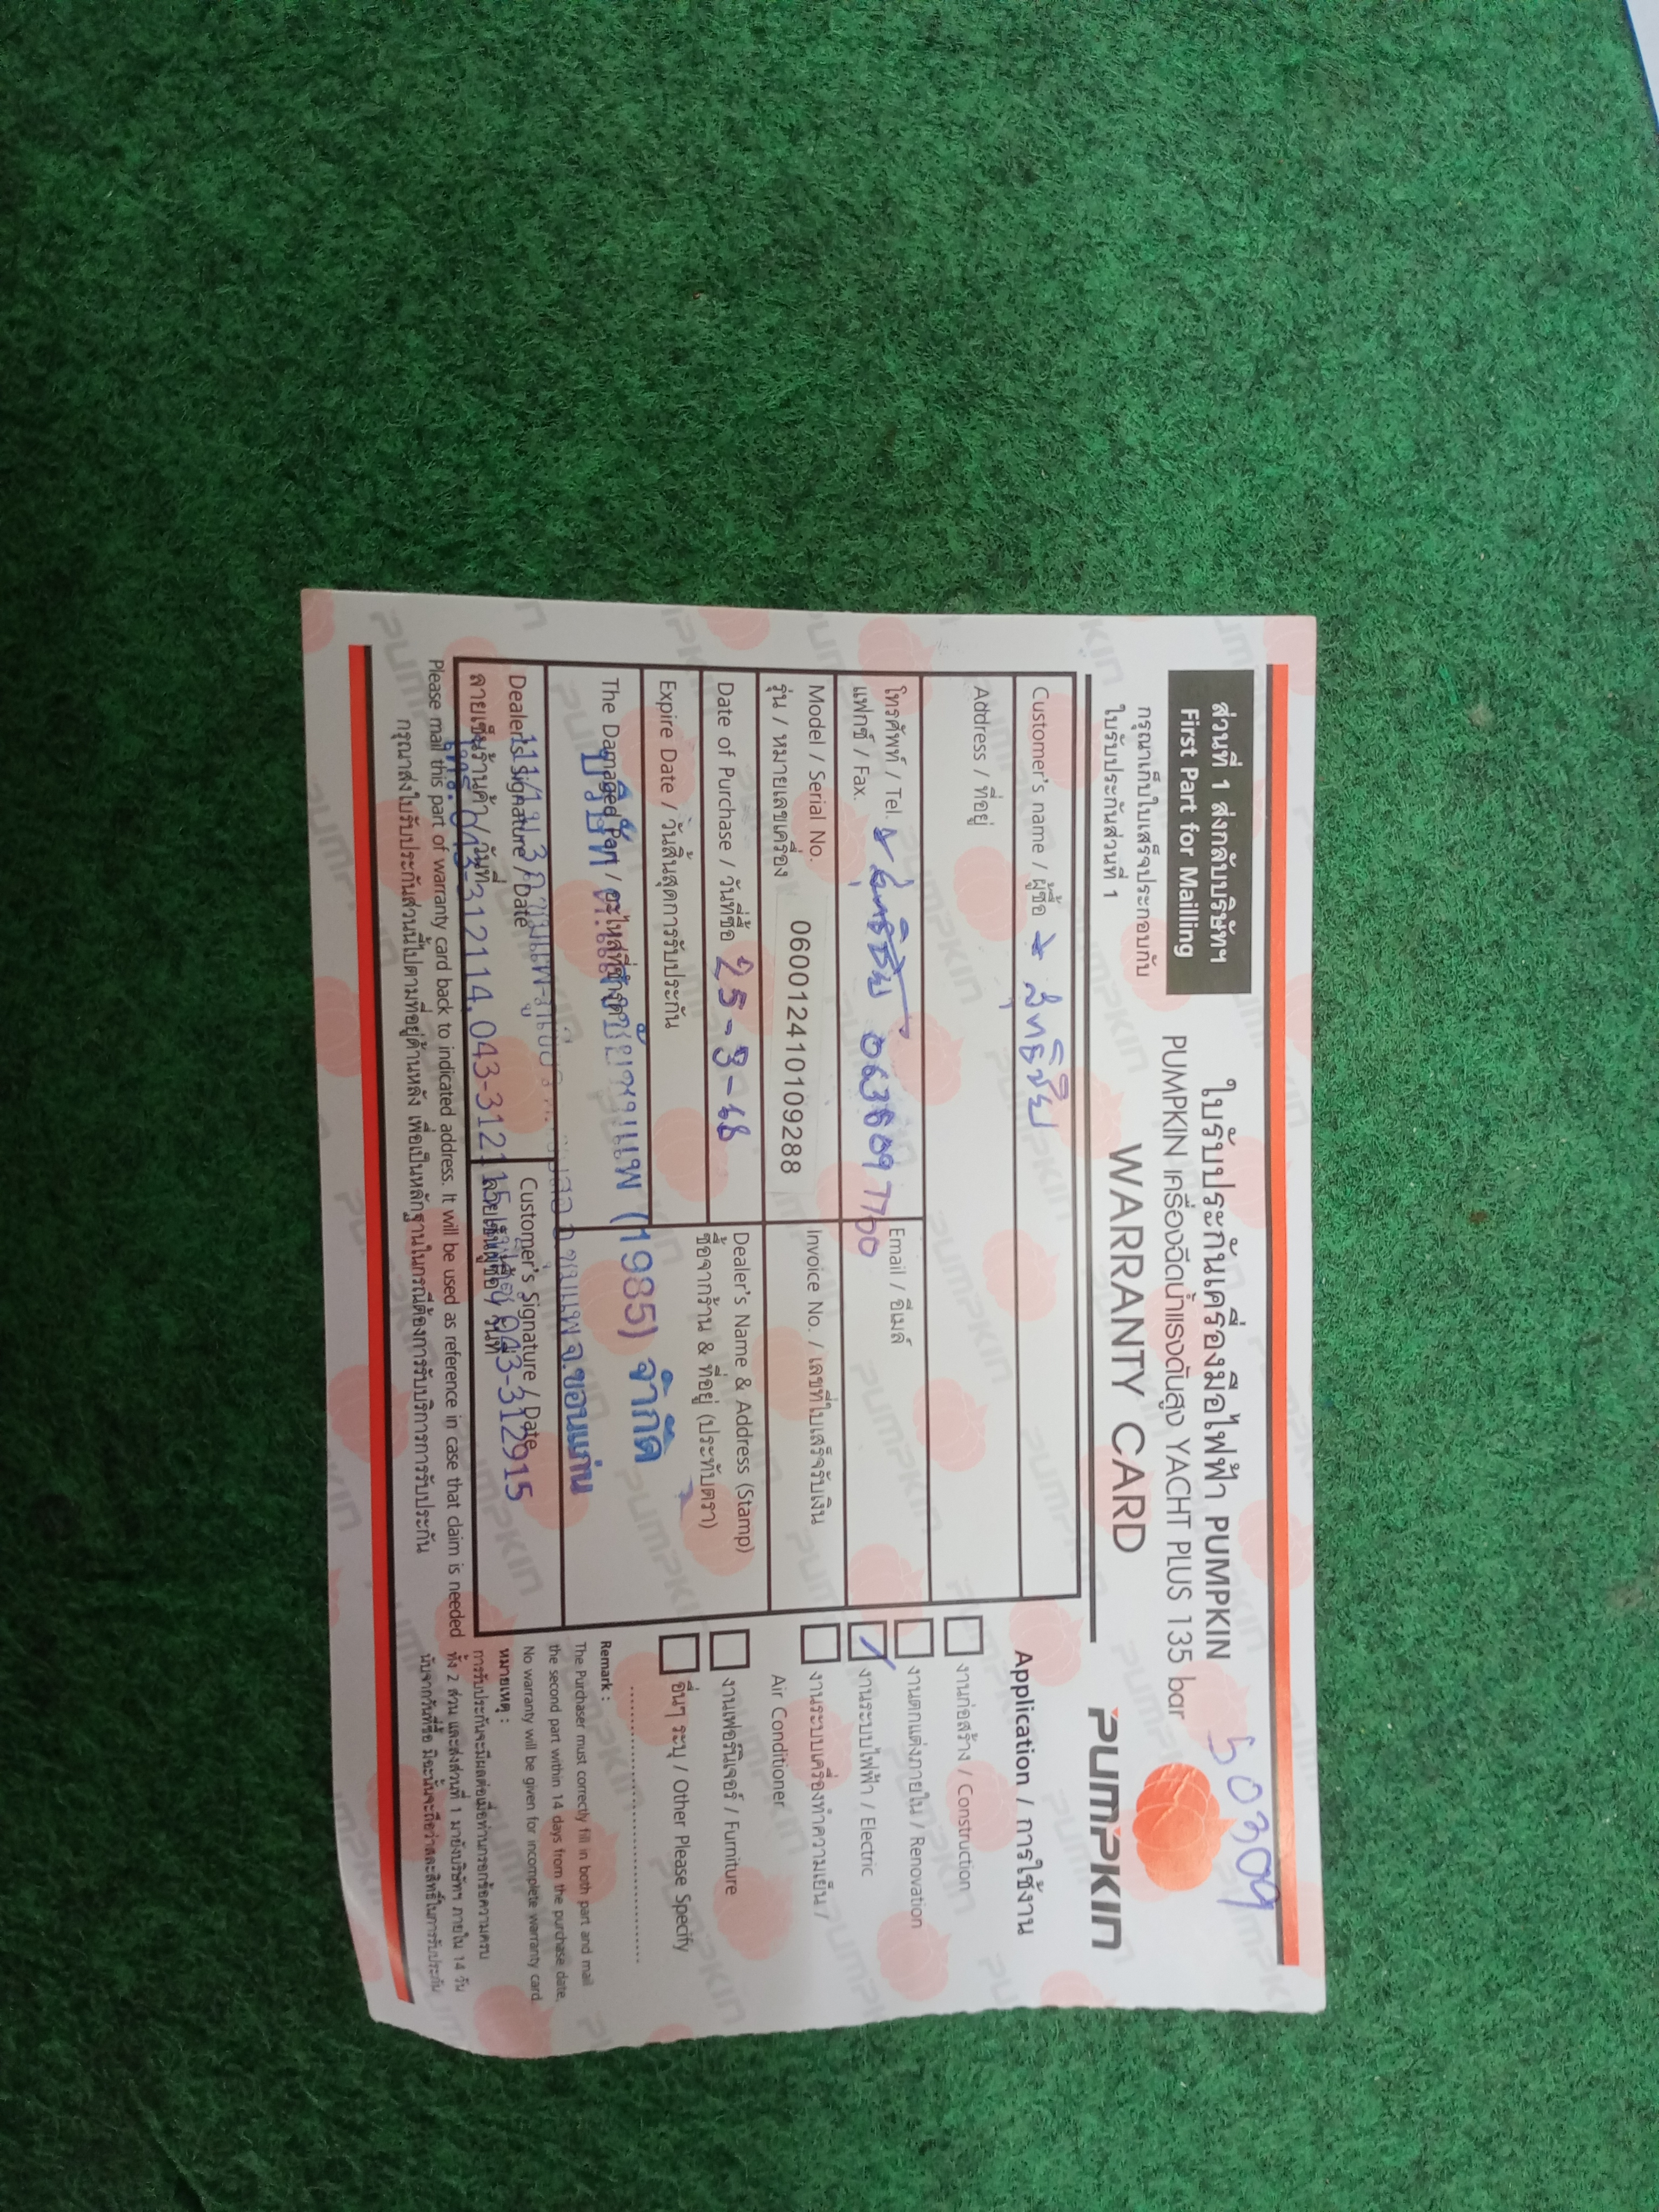 ส่วนที่ 1 ส่งกลับบริษัทฯ
First Part for Mailling
กรุณาเก็บใบเสร็จประกอบกับ
ใบรับประกันส่วนที่ 1
ใบรับประกันเครื่องมือไฟฟ้า PUMPKIN
PUMPKIN เครื่องฉีดน้ำแรงดันสูง YACHT PLUS 135 bar
WARRANTY CARD
50309
PUMPKIN
Customer's name / ผู้ซื้อ สุทธิชัย
Address / ที่อยู่
โทรศัพท์ / Tel.
แฟกซ์ / Fax.
Email / อีเมล์
Model / Serial No.
รุ่น / หมายเลขเครื่อง
060012410109288
Invoice No. / เลขที่ใบเสร็จรับเงิน
Date of Purchase / วันที่ซื้อ 25-3-68
Dealer's Name & Address (Stamp)
ชื่อจากร้าน & ที่อยู่ (ประทับตรา)
Expire Date / วันสิ้นสุดการรับประกัน
The Damaged Part / อะไหล่ที่ชำรุด
บริษัท (1985) จำกัด
111/1 ม.3 อ.ชุมแพ จ.ขอนแก่น
Dealer's Signature / Date
ลายเซ็นร้านค้า / วันที่
Customer's Signature / Date
ลายเซ็นผู้ซื้อ / วันที่
โทร.043-312114,043-312115 043-312915
Please mail this part of warranty card back to indicated address. It will be used as reference in case that claim is needed
กรุณาส่งใบรับประกันส่วนนี้ไปตามที่อยู่ด้านหลัง เพื่อเป็นหลักฐานในกรณีต้องการรับบริการการรับประกัน
Application / การใช้งาน
งานก่อสร้าง / Construction
งานตกแต่งภายใน / Renovation
งานระบบไฟฟ้า / Electric
งานระบบเครื่องทำความเย็น /
Air Conditioner
งานเฟอร์นิเจอร์ / Furniture
อื่นๆ ระบุ / Other Please Specify
Remark :
The Purchaser must correctly fill in both part and mail
the second part within 14 days from the purchase date,
No warranty will be given for incomplete warranty card.
หมายเหตุ :
การรับประกันจะมีผลต่อเมื่อท่านกรอกข้อความครบ
ทั้ง 2 ส่วน และส่งส่วนที่ 1 มายังบริษัทฯ ภายใน 14 วัน
นับจากวันที่ซื้อ มิฉะนั้นจะถือว่าสละสิทธิ์ในการรับประกัน